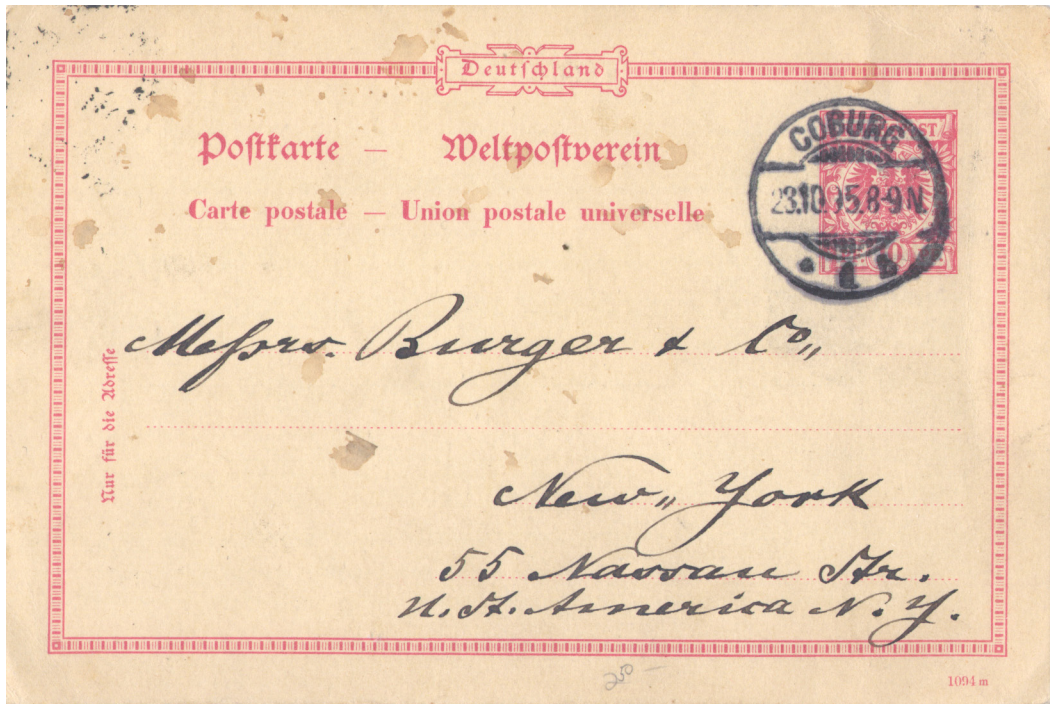 Deutschland
Postkarte — Weltpostverein
Carte postale — Union postale universelle
COBURG
23.10.95.8-9N.
Nur für die Adresse
Messrs. Burger & Co„
New„ York
55 Nassau Str.
U. St. America N. Y.
250 —
1094 m